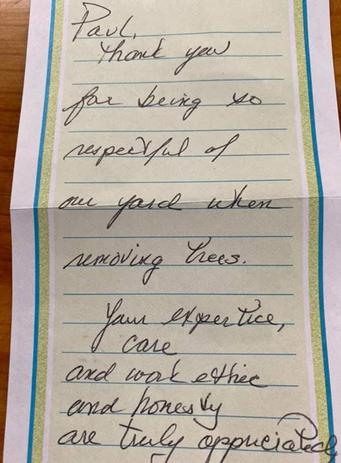 Paul,
Thank you
for being so
respectful of
our yard when
removing trees.
Your expertice,
care
and work ethic
and honesty
are truly appriciated